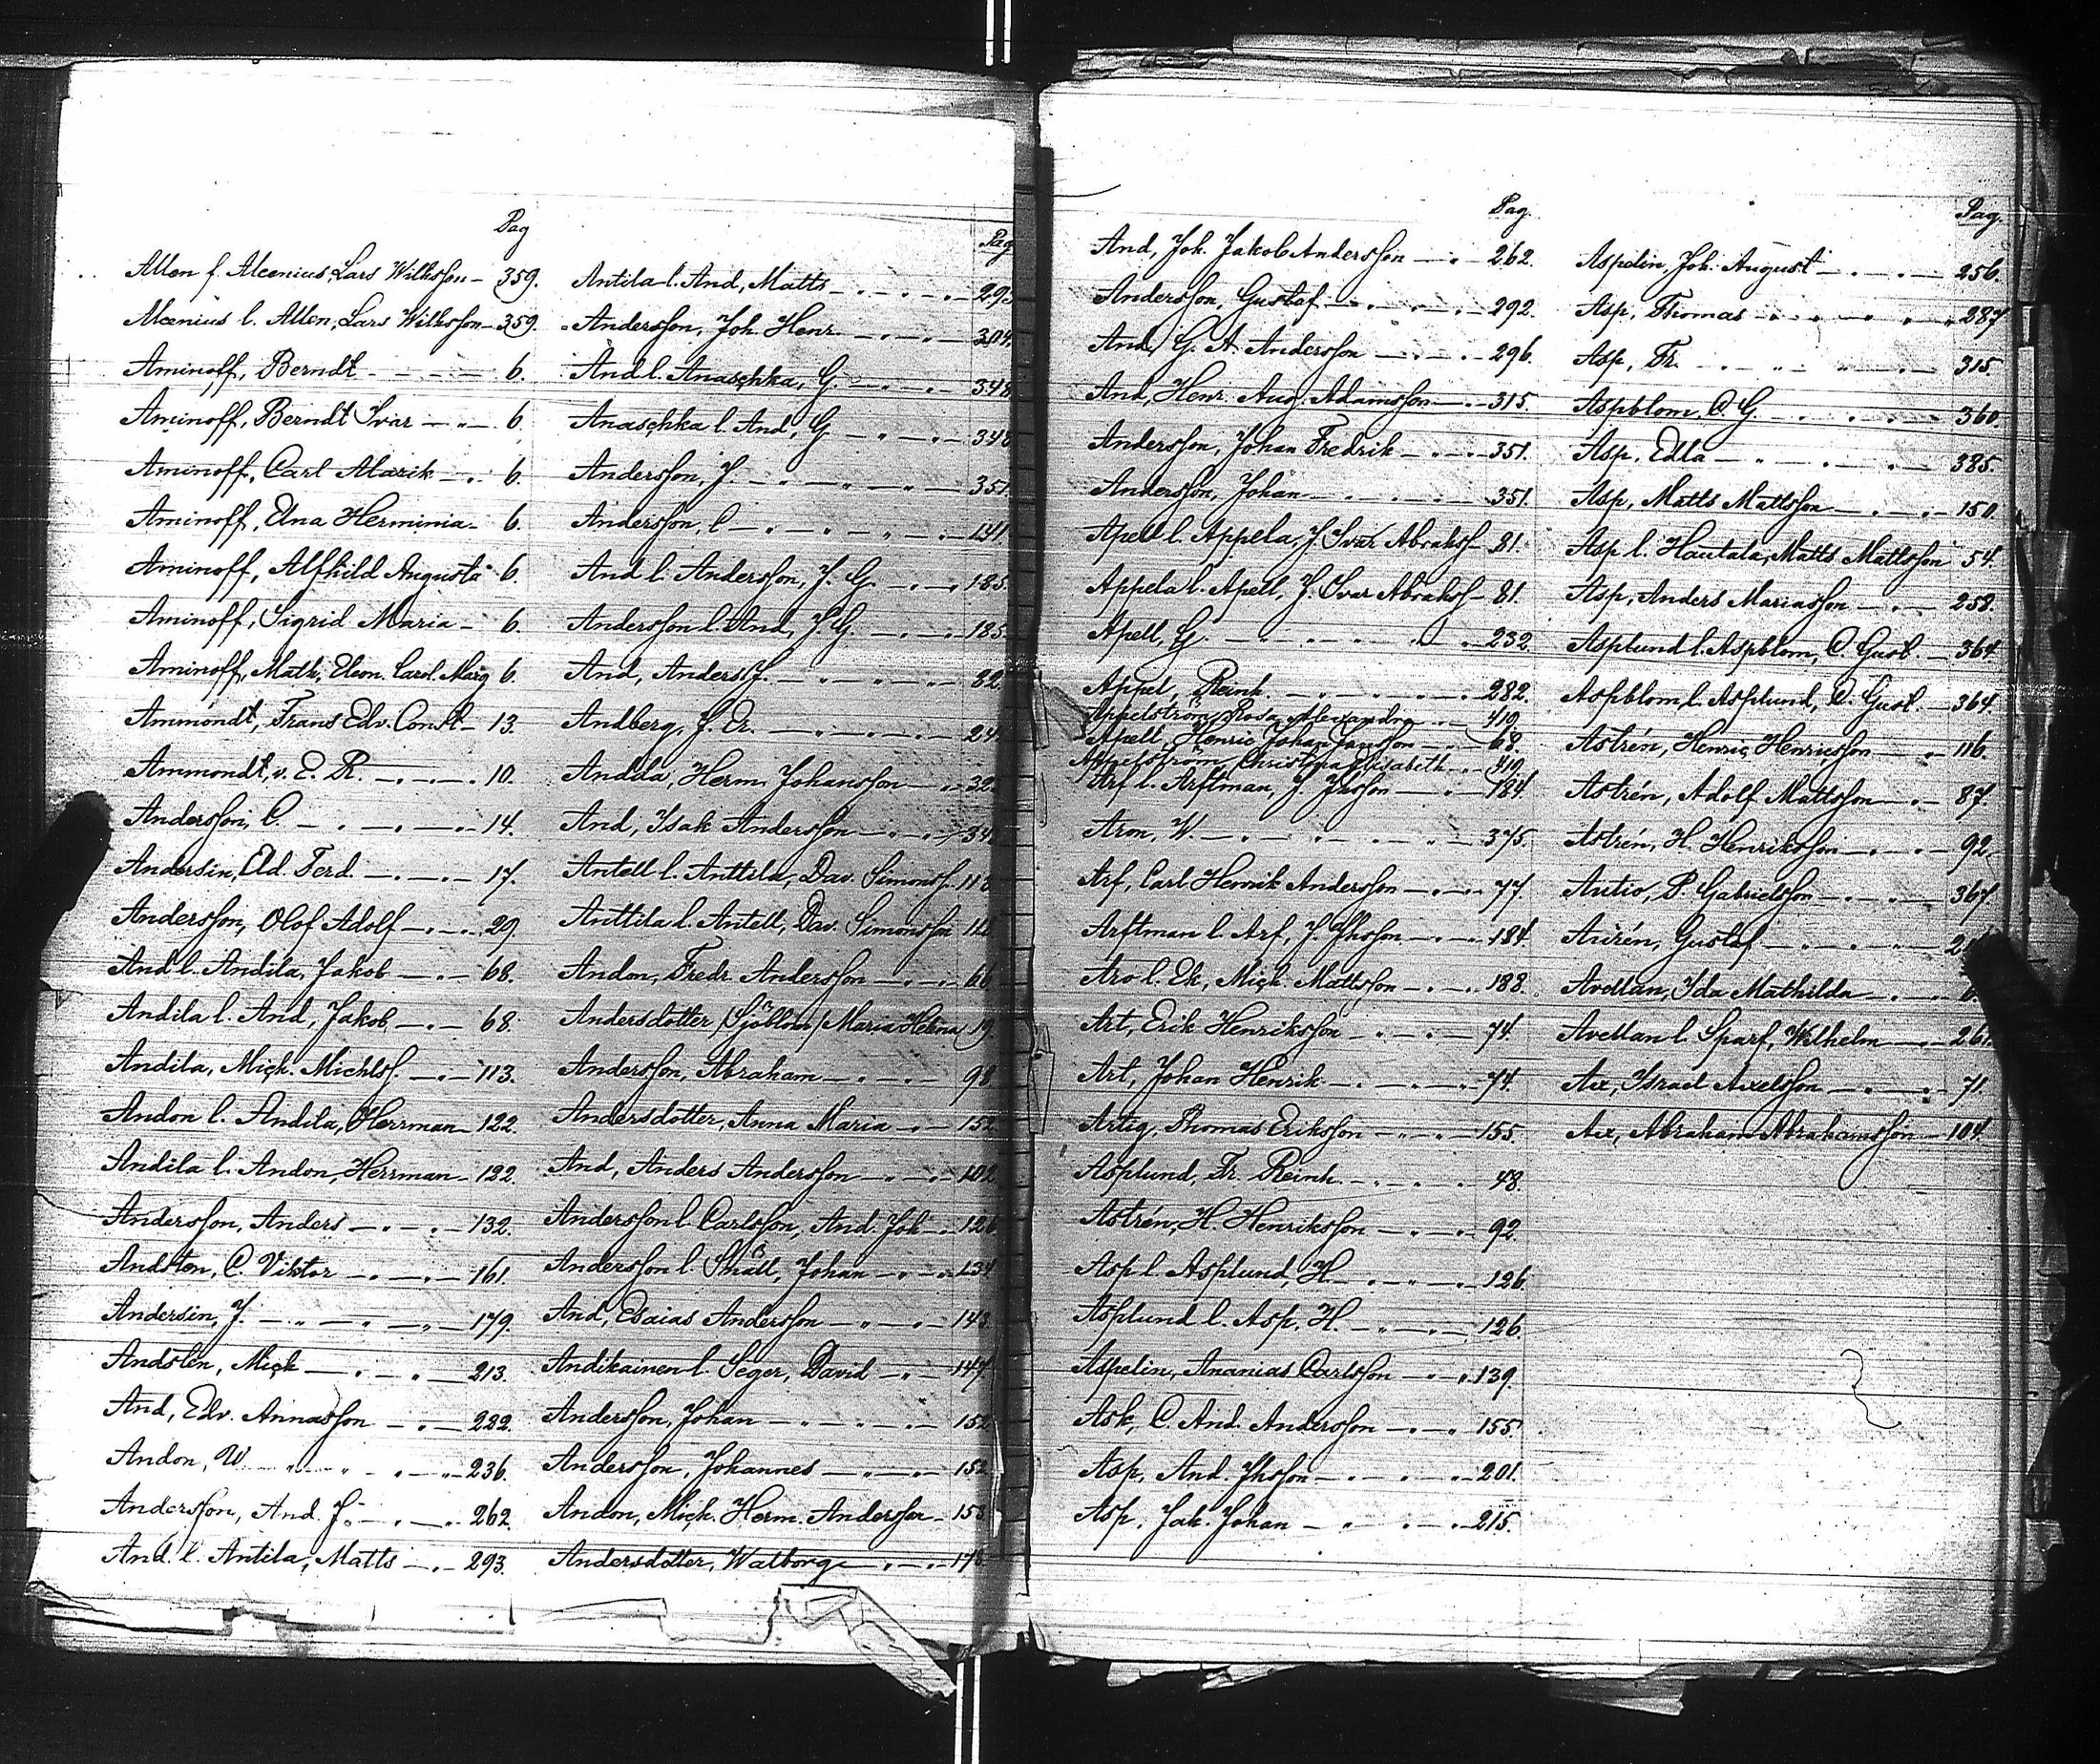 Pag
Allen l. Alcenius, Lars Wilhsson 359.
Alcenius l. Allen, Lars Wilhsson 359.
Aminoff, Berndt 6.
Aminoff, Berndt Ivar 6.
Aminoff, Carl Alarik 6.
Aminoff, Edna Herminia 6.
Aminoff, Alfhild Augusta 6.
Aminoff, Sigrid Maria 6.
Aminoff, Math. Eleon. Carol. Marg 6.
Ammondt, Frans Edv. Const 13.
Ammondt, v. E. R. 10.
Andersson, C. 14.
Andersin, Eld. Ferd. 17.
Andersson, Olof Adolf 29.
And l. Andila, Jakob 68.
Andila l. And, Jakob 68.
Andila, Mich. Michlss. 113.
Andon l. Andila, Herrman 122.
Andila l. Andon, Herrman 122.
Andersson, Anders 132.
Andsten, C. Viktor 161.
Andersin, J. 179.
Andslén, Mich 213.
And, Edv. Annasson 222.
Andon, W. 236.
Andersson, And. J. 262.
And. l. Antila, Matts 293.
Pag
Antila l. And, Matts 293
Andersson, Joh. Henr. 304.
And l. Anaschka, G. 348
Anaschka l. And, G 348
Andersson, J. 351
Andersson, C 141
And l. Andersson, J. G. 185.
Andersson l. And, J. G. 185
And, Anders J. 82
Andberg, J. Er. 24
Andila, Herm. Johansson 32
And, Isak Andersson 34
Antell l. Anttila, Dav. Simonss. 118
Anttila l. Antell, Dav. Simonsson 118
Andon, Fredr. Andersson 66
Andersdotter /Sjöblom/ Maria Helena 19.
Andersson, Abraham 98
Andersdotter, Anna Maria 152
And, Anders Andersson 102
Andersson l. Carlsson, And. Joh 126
Andersson l. Snäll, Johan 134
And, Esaias Andersson 143
Andikainen l. Seger, David 147
Andersson, Johan 152
Andersson, Johannes 153
Andon, Mich. Herm. Andersson 153
Andersdotter, Walborg 178
Pag.
And, Joh. Jakob Andersson 262.
Andersson, Gustaf 292.
And, G. A. Andersson 296.
And, Henr. Aug. Adamsson 315.
Andersson, Johan Fredrik 351.
Andersson, Johan 351.
Apell l. Appela, J. Ivar Abrahss 81.
Appela l. Apell, J. Ivar Abrahss 81.
Apell, G. 232.
Appel, Reinh. 282.
Appelström, Rosa Alexandra 419
Apell, Henric Johan Jansson 68.
Appelström, Christina Elisabeth 419
Arf l. Arftman, J. Jhsson 184.
Aron, W. 375.
Arf, Carl Henrik Andersson 77.
Arftman l. Arf, J. Jhsson 184
Aro l. Ek, Mich. Mattsson 188.
Art, Erik Henriksson 74.
Art, Johan Henrik 74.
Artig, Thomas Eriksson 155.
Asplund, Fr. Reinh. 48.
Astrén, H. Henriksson 92.
Asp l. Asplund, H 126.
Asplund l. Asp, H. 126
Aspelin, Ananias Carlsson 139.
Ask, C. And. Andersson 155
Asp, And. Jhsson 201.
Asp, Jak. Johan 215.
Pag.
Aspelin, Joh. August 256.
Asp, Thomas 287
Asp, Fr. 315.
Aspblom, C. G. 360
Asp, Edla 385.
Asp, Matts Mattsson 150.
Asp l. Hautala, Matts Mattsson 54.
Asp, Anders Mariasson 258.
Asplund l. Aspblom, C. Gust. 364.
Aspblom l. Asplund, C. Gust. 364.
Astrén, Henric Henricsson 116.
Astrén, Adolf Mattsson 87.
Astrén, H. Henriksson 92.
Autio, P. Gabrielsson 367.
Aurén, Gustaf
Avellan, Ida Mathilda 6.
Avellan l. Sparf, Wilhelm 261.
Ax, Israel Axelsson 71.
Ax, Abraham Abrahamsson 104.